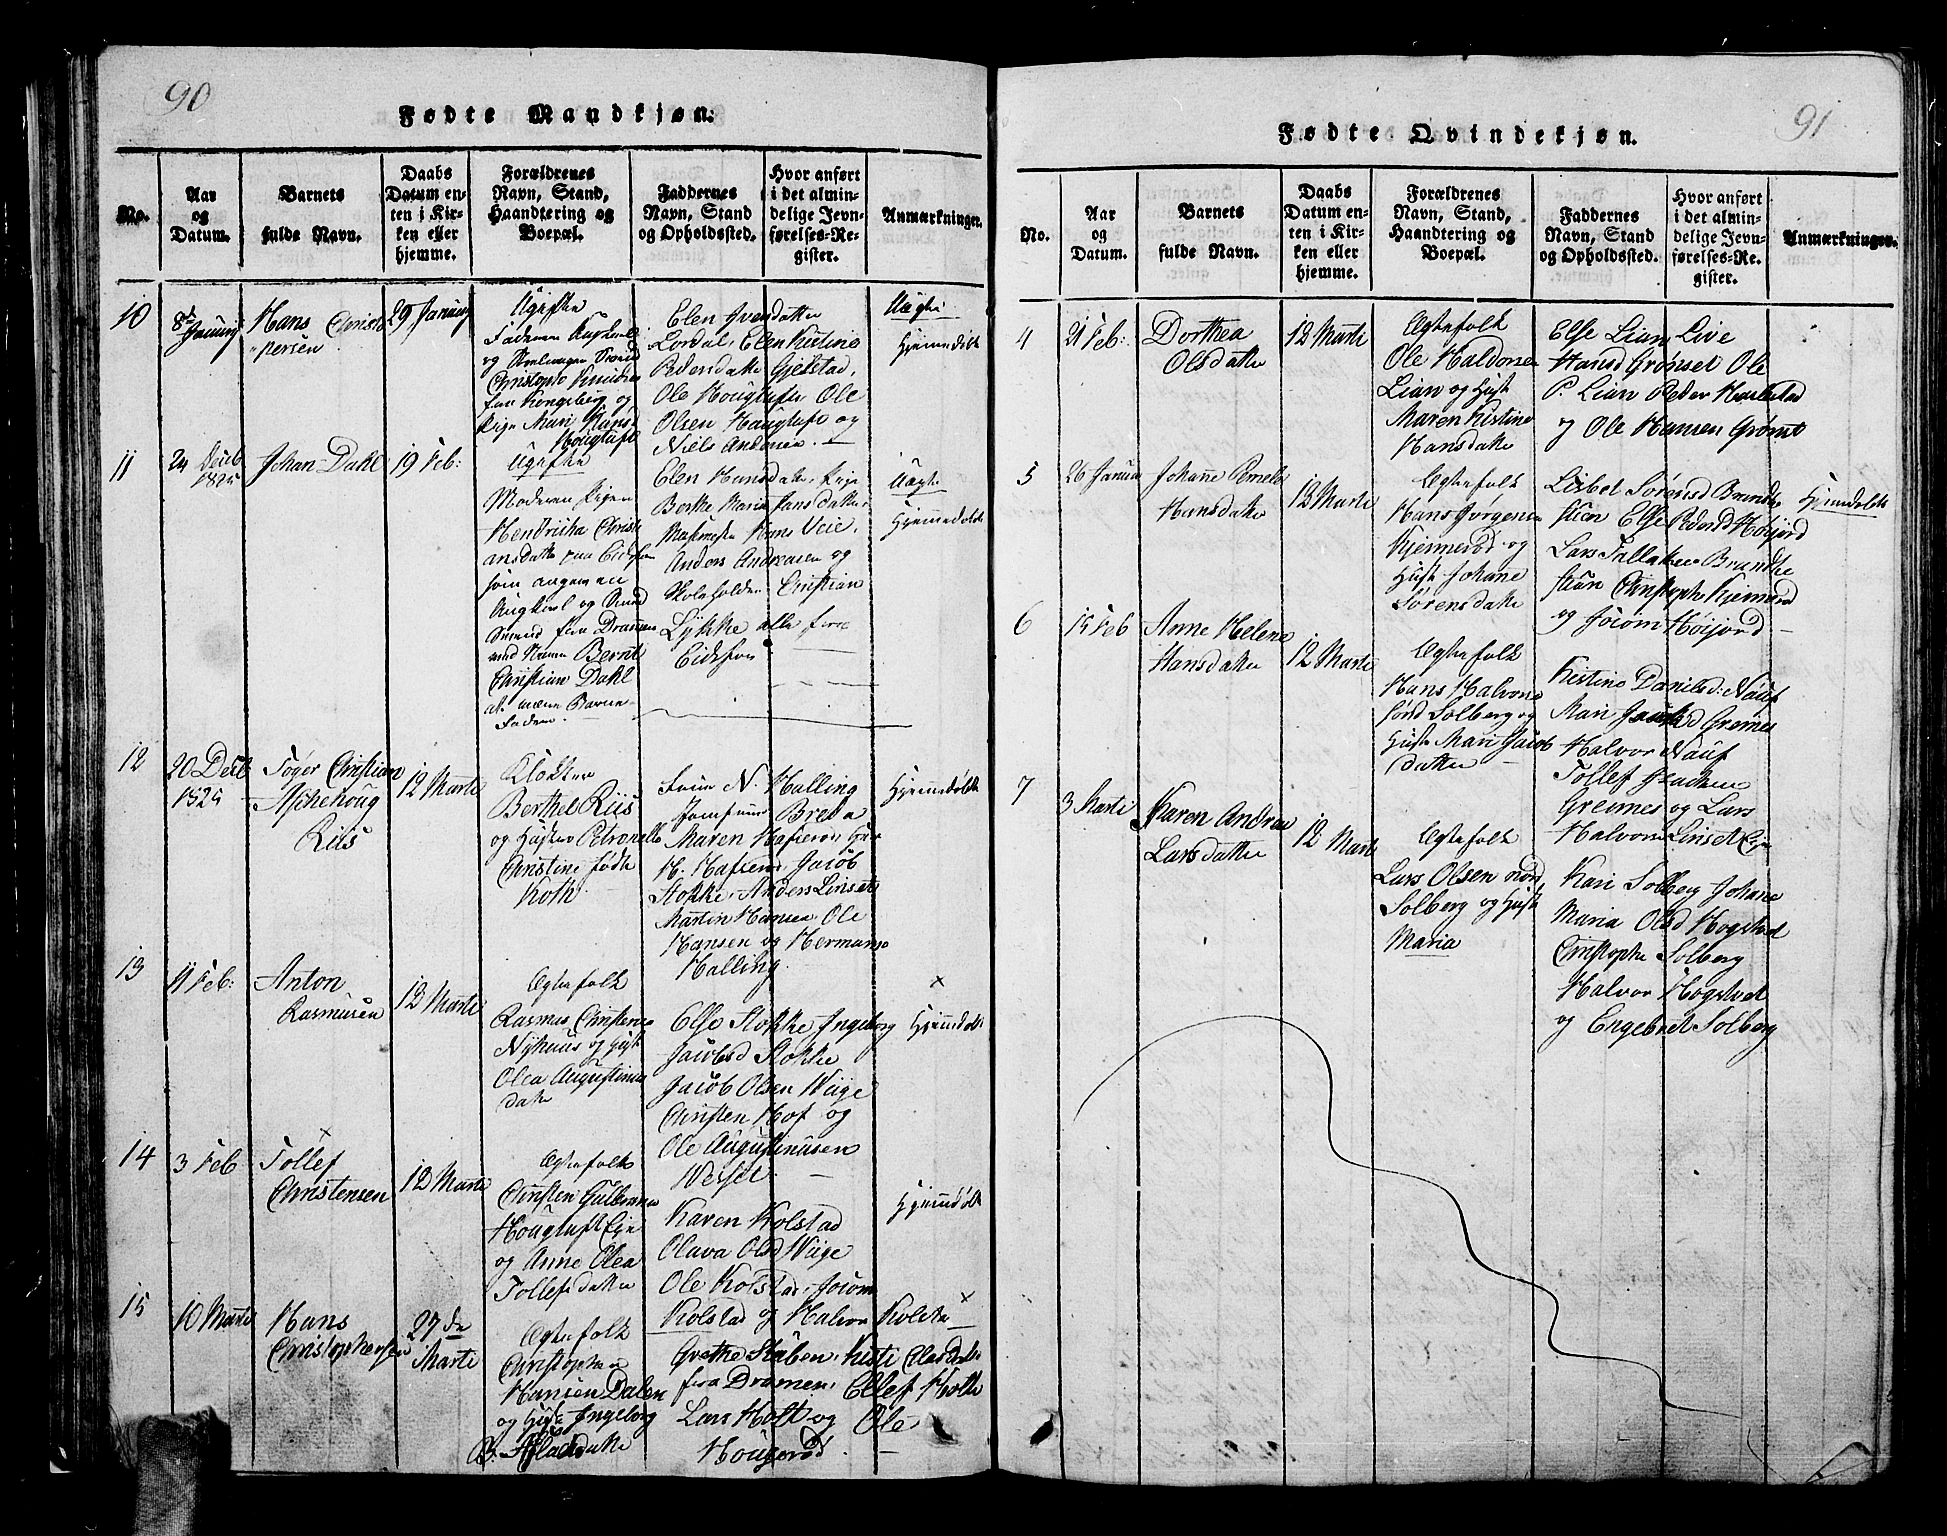 90
Fødte Mandkjøn.
No.
Aar
og
Datum.
Barnets
fulde Navn.
Daabs
Datum en-
ten i Kir-
ken eller
hjemme.
Forældrenes
Navn, Stand,
Haandtering og
Boepæl.
Faddernes
Navn, Stand
og Opholdssted.
Hvor anført
i det almin-
delige Jevn-
førelses-Re-
gister.
Anmærkninger.
10
Hans Christo
persen
29 Januarj
Ugifte
Faderen
og Svend
Christopher Knudsen
fra Kongsberg og
Pige Mari Hansd
Hougtuft
Elen
Lordal, Elen Kistine
Pedersdatter Gjelstad,
Ole Hougtuft, Ole
Olsen Hougtuft og
Niels Andersen.
Uægte
Hjemmedøbt
11
24 Decb
1825
Johan Dahl
19 Feb:
Ugifte
Moderen Pigen
Hendricha Christi
ansdatter paa Eidsfos
som angiven
og Smed
Svend fra Drammen
med Navn Bernt
Christian Dahl
at være Barne-
Faderen.
Elen Hansdatter, Pige
Berthe Maria Hansdatter
Hans Veie,
Anders Andreasen og
Skoleholder Christian
Lykke alle fra
Eidsfos
Uægte
Hjemmedøbt
12
20 Decb
1825
Tøger Christian
Aschehoug
Riis
12 Marti
Klokker
Berthel Riis
og Hustru Petronelle
Christine født
Koth
Frue N. Halling
Jomfrue Breda
Maren
Jacob
Stokke, Anders Linset
Martin Hansen Ole
Hansen og Hermann
Halling
Hjemmedøbt
13
11 Feb:
Anton
Rasmusen
12 Marti
Ægtefolk
Rasmus Christensen
Nyhuus og Hust
Olea Augustinus
datter
Else Stokke, Ingeborg
Jacobsd Stokke
Jacob Olsen Wiige
Christen Hof og
Ole Augustinusen
Werset
Hjemmedøbt
14
3 Feb
Tollef
Christensen
12 Marti
Ægtefolk
Christen Gulbrans
Hougtuft Eje
og Anne Olea
Tollefsdatter
Karen Kolstad
Olava Olsd Wiige
Ole Kolstad, Jocom
Kolstad og Halvor Kolstad
Hjemmedøbt
15
10 Marti
Hans
Christophersen
27 de
Marti
Ægtefolk
Christopher
Hansen Dalen
og Hust Ingeborg
Grethe Staben, Kisti
fra Dramen, Ellef Holte
Lars Holt og Ole
Hougerød
91
Fødte Qvindekjøn.
No.
Aar
og
Datum.
Barnets
fulde Navn.
Daabs
Datum en-
ten i Kir-
ken eller
hjemme.
Forældrenes
Navn, Stand,
Haandtering og
Boepæl.
Faddernes
Navn, Stand
og Opholdssted.
Hvor anført
i det almin-
delige Jevn-
førelses-Re-
gister.
Anmærkninger.
4
21 Feb:
Dorthea
Olsdatter
12 Marti
Ægtefolk
Ole Haldorsen
Lian og Hust
Maren Kistine
Hansdatter
Else Lian, Live
Hansd Grønset Ole
P. Lian Peder
og Ole Hansen Grønset
5
26 Januar
Johanne Pernelle
Hansdatter
12 Marti
Ægtefolk
Hans Jørgensen
Kjemerød og
Hust Johane
Sørensdatter
Lisbet Sørensd Brandte
stuen Else Pedersd Hoijord
Lars Tallaksen Brandte
stuen Christopher Kjemerød
og Jocom Hoijord
Hjemmedøbt
6
15 Feb
Anne Helene
Hansdatter
12 Marti
Ægtefolk
Hans Halvors
Solberg og
Hust Mari Jacob
datter
Kistine Danielsd: Nauf
Mari Gremnes
Halvor Nauf
Tollef
Gremnes og Lars
Halvorsen Linset Eje
7
3 Marti
Karen Andrea
Larsdatter
12 Marti
Ægtefolk
Lars Olsen
Solberg og Hust
Maria
Kari Solberg Johane
Maria Olsd Hogstvet
Christopher Solberg
Halvor Hogstvet
og Engebret Solberg